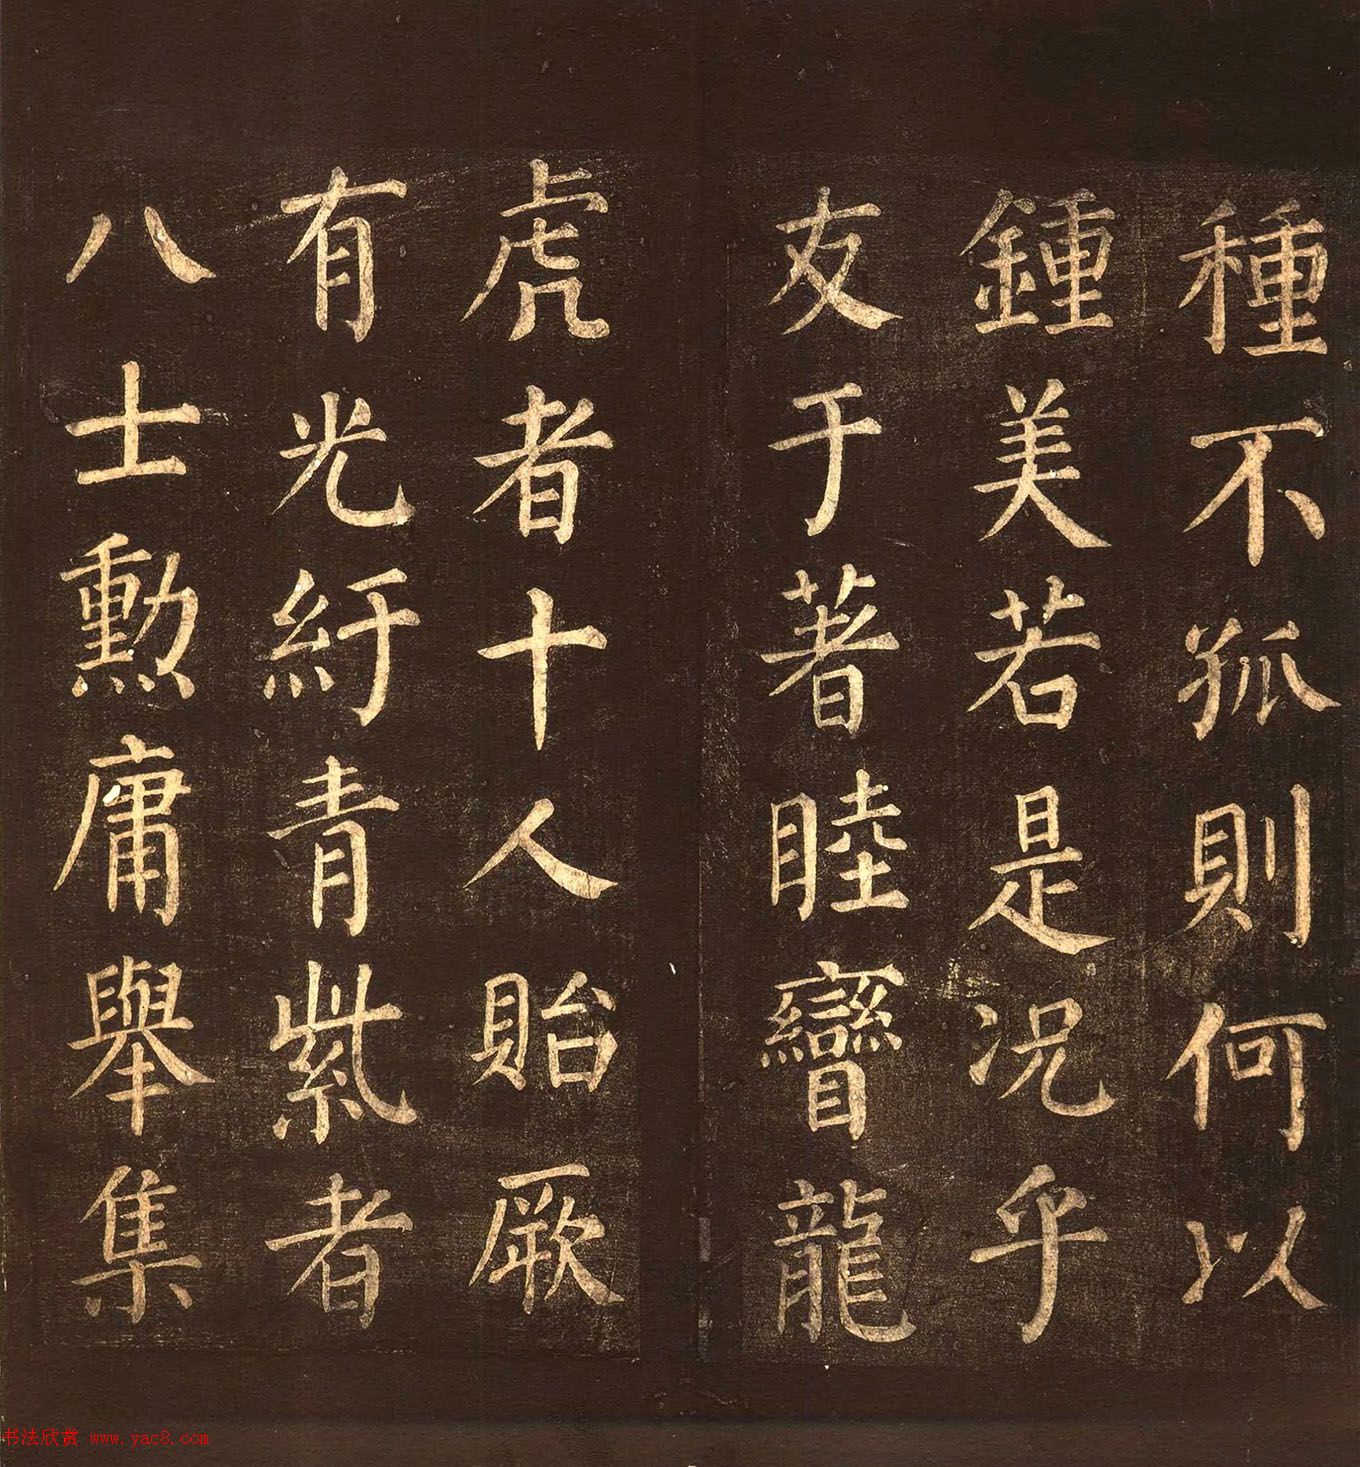 種不孤則何以
鍾美若是况乎
友于著睦矕龍
虎者十人貽厥
有光紆青紫者
八士勲庸舉集
书法欣赏 www.yac8.com